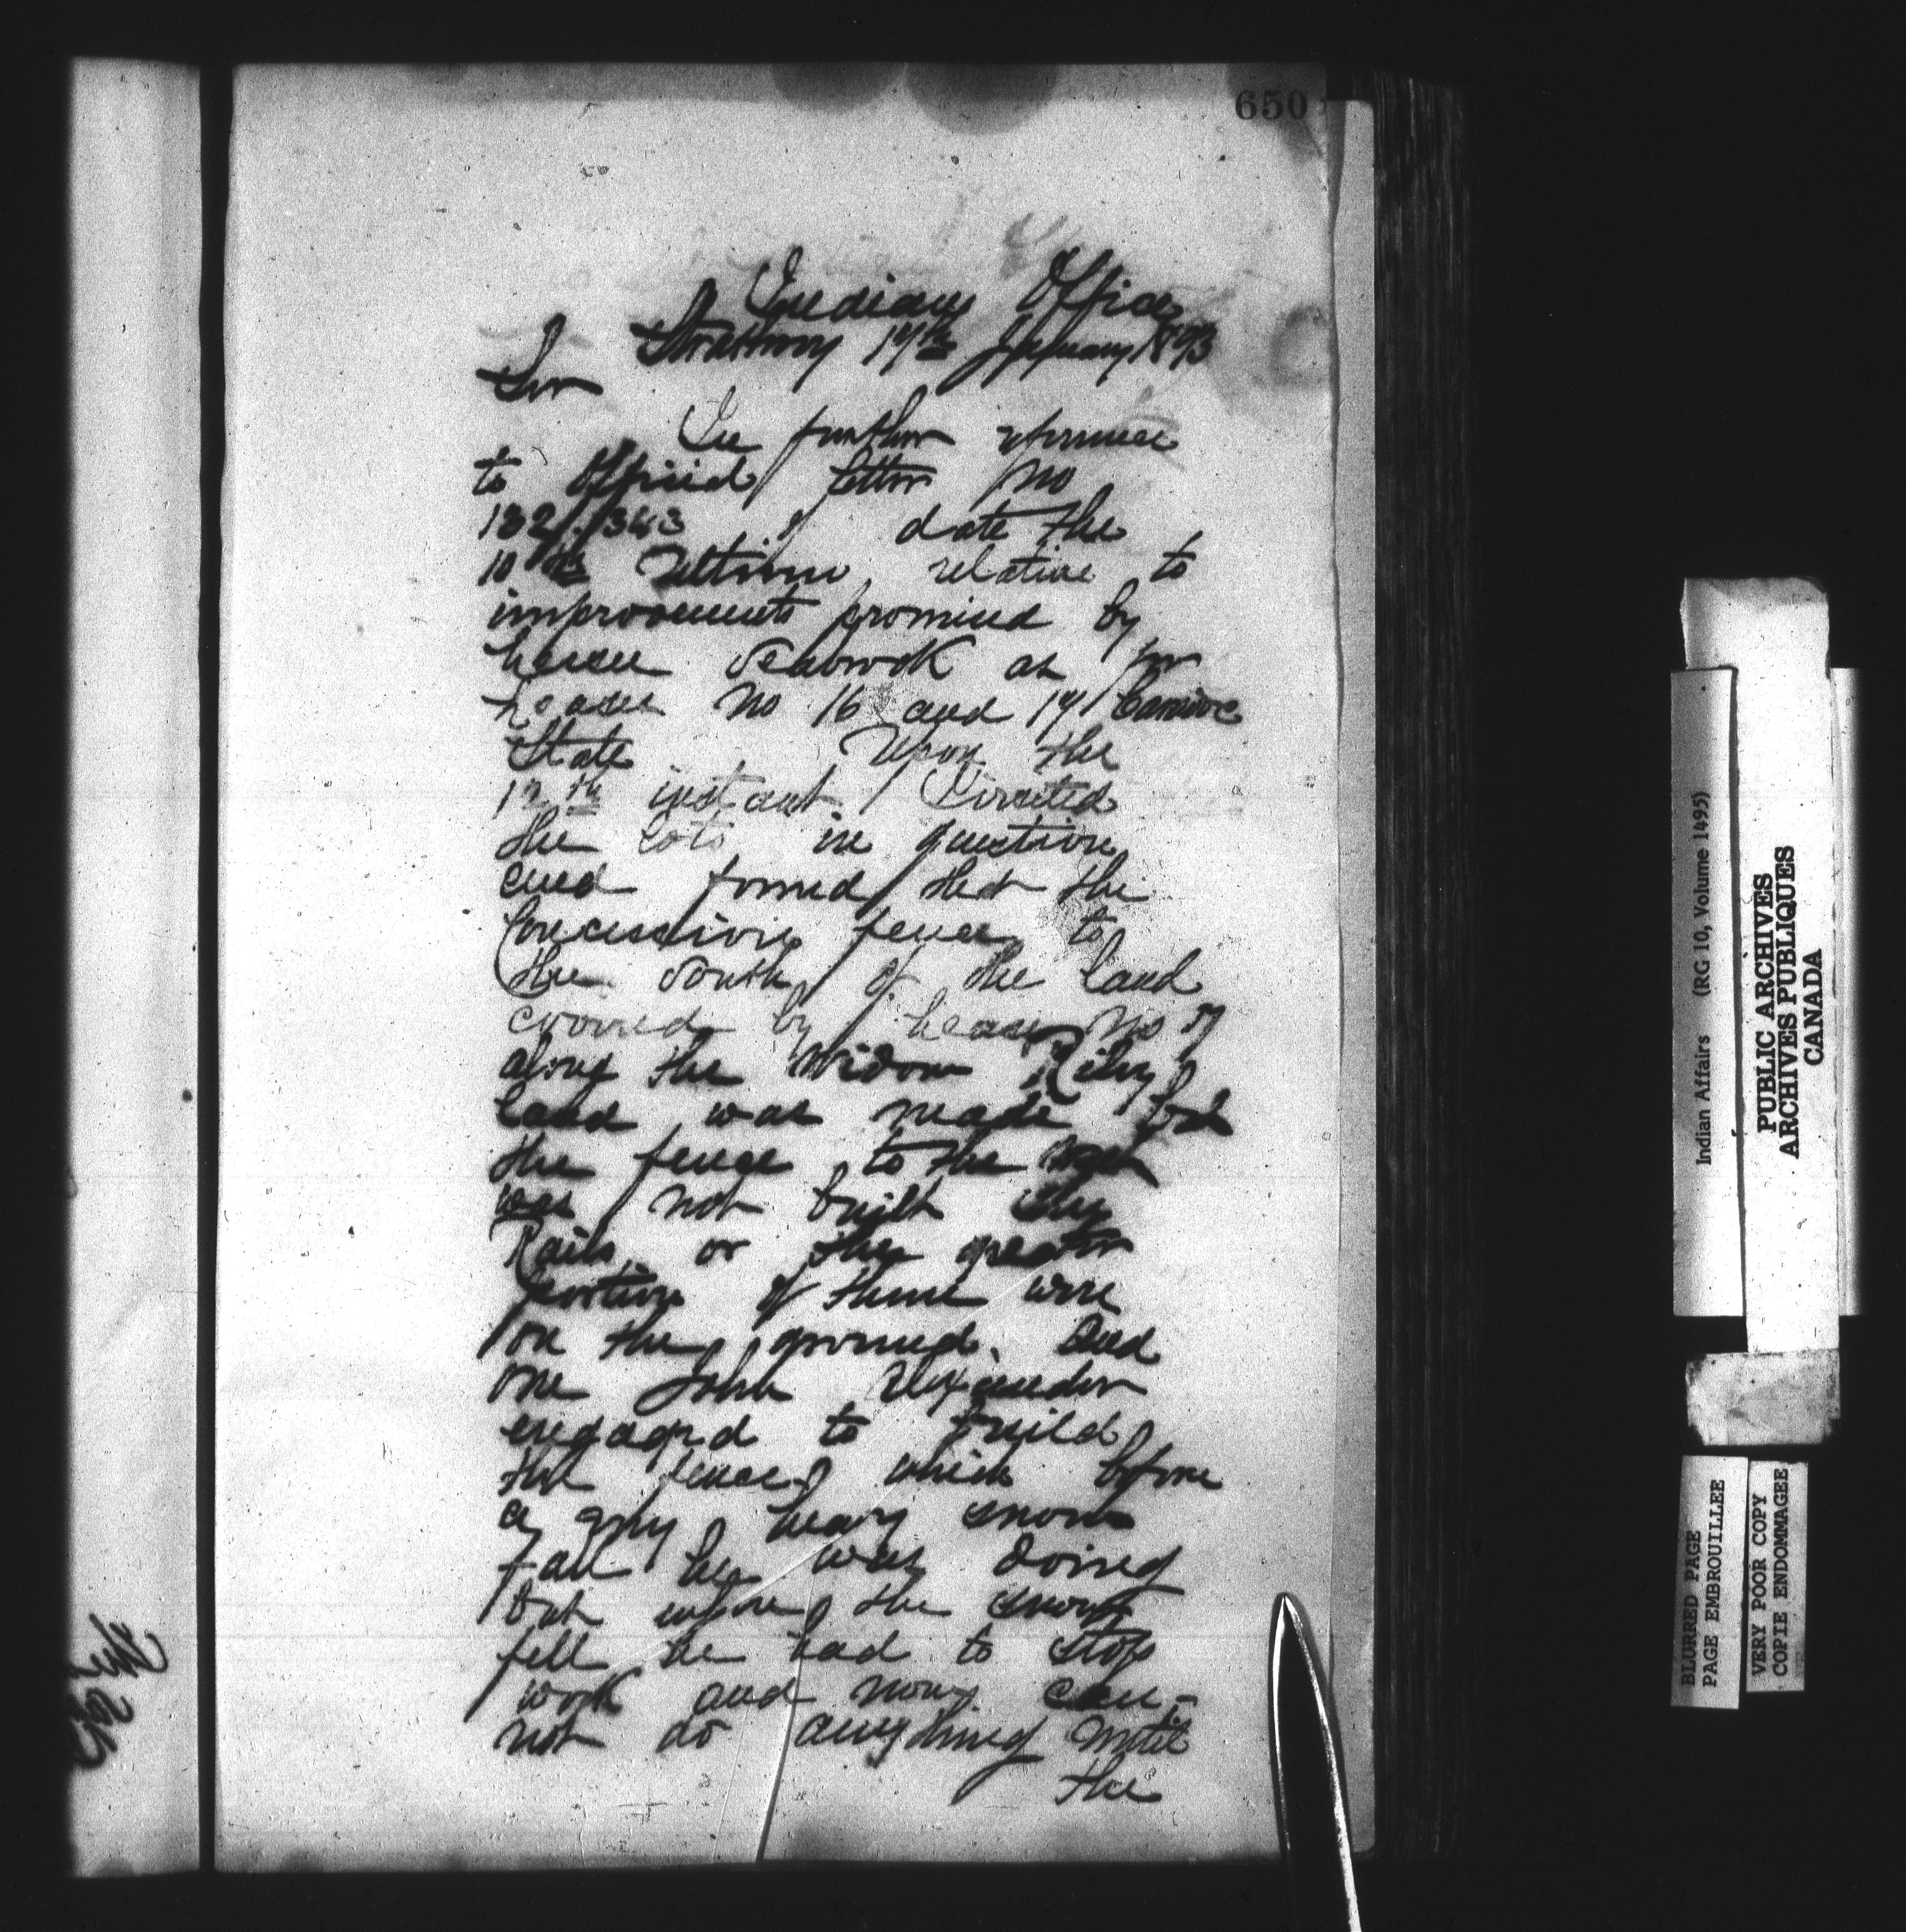 650
Indian Office
Strathroy 17th January 1893
Sir
In further reference
to Official letter No
132/.343 of date the
10th Ultimo relative to
improvements promised by
Lessee Seabrook as per
Leases No 16 and 17 Caradoc
State Upon the
12th instant I visited
the lots in question
and found that the
Concession fence to
the South of the land
covered by Lease No 17
along the Widow Riley
land was made but
the fence to the West
was not built The
Rails or the greater
portion of them were
on the ground. And
one John Alexander
engaged to build
the fence, which before
a very heavy snow
fall he was doing
but when the snow
fell he had to stop
work and now can-
not do anything until
the
Indian Affairs (RG 10, Volume 1495)
PUBLIC ARCHIVES
ARCHIVES PUBLIQUES
CANADA
BLURRED PAGE
PAGE EMBROUILLEE
VERY POOR COPY
COPIE ENDOMMAGEE